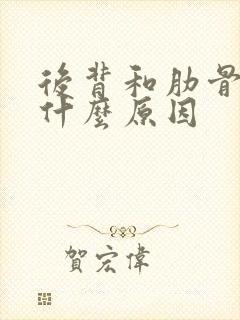 後背和肋骨
什麼原因
賀宏偉